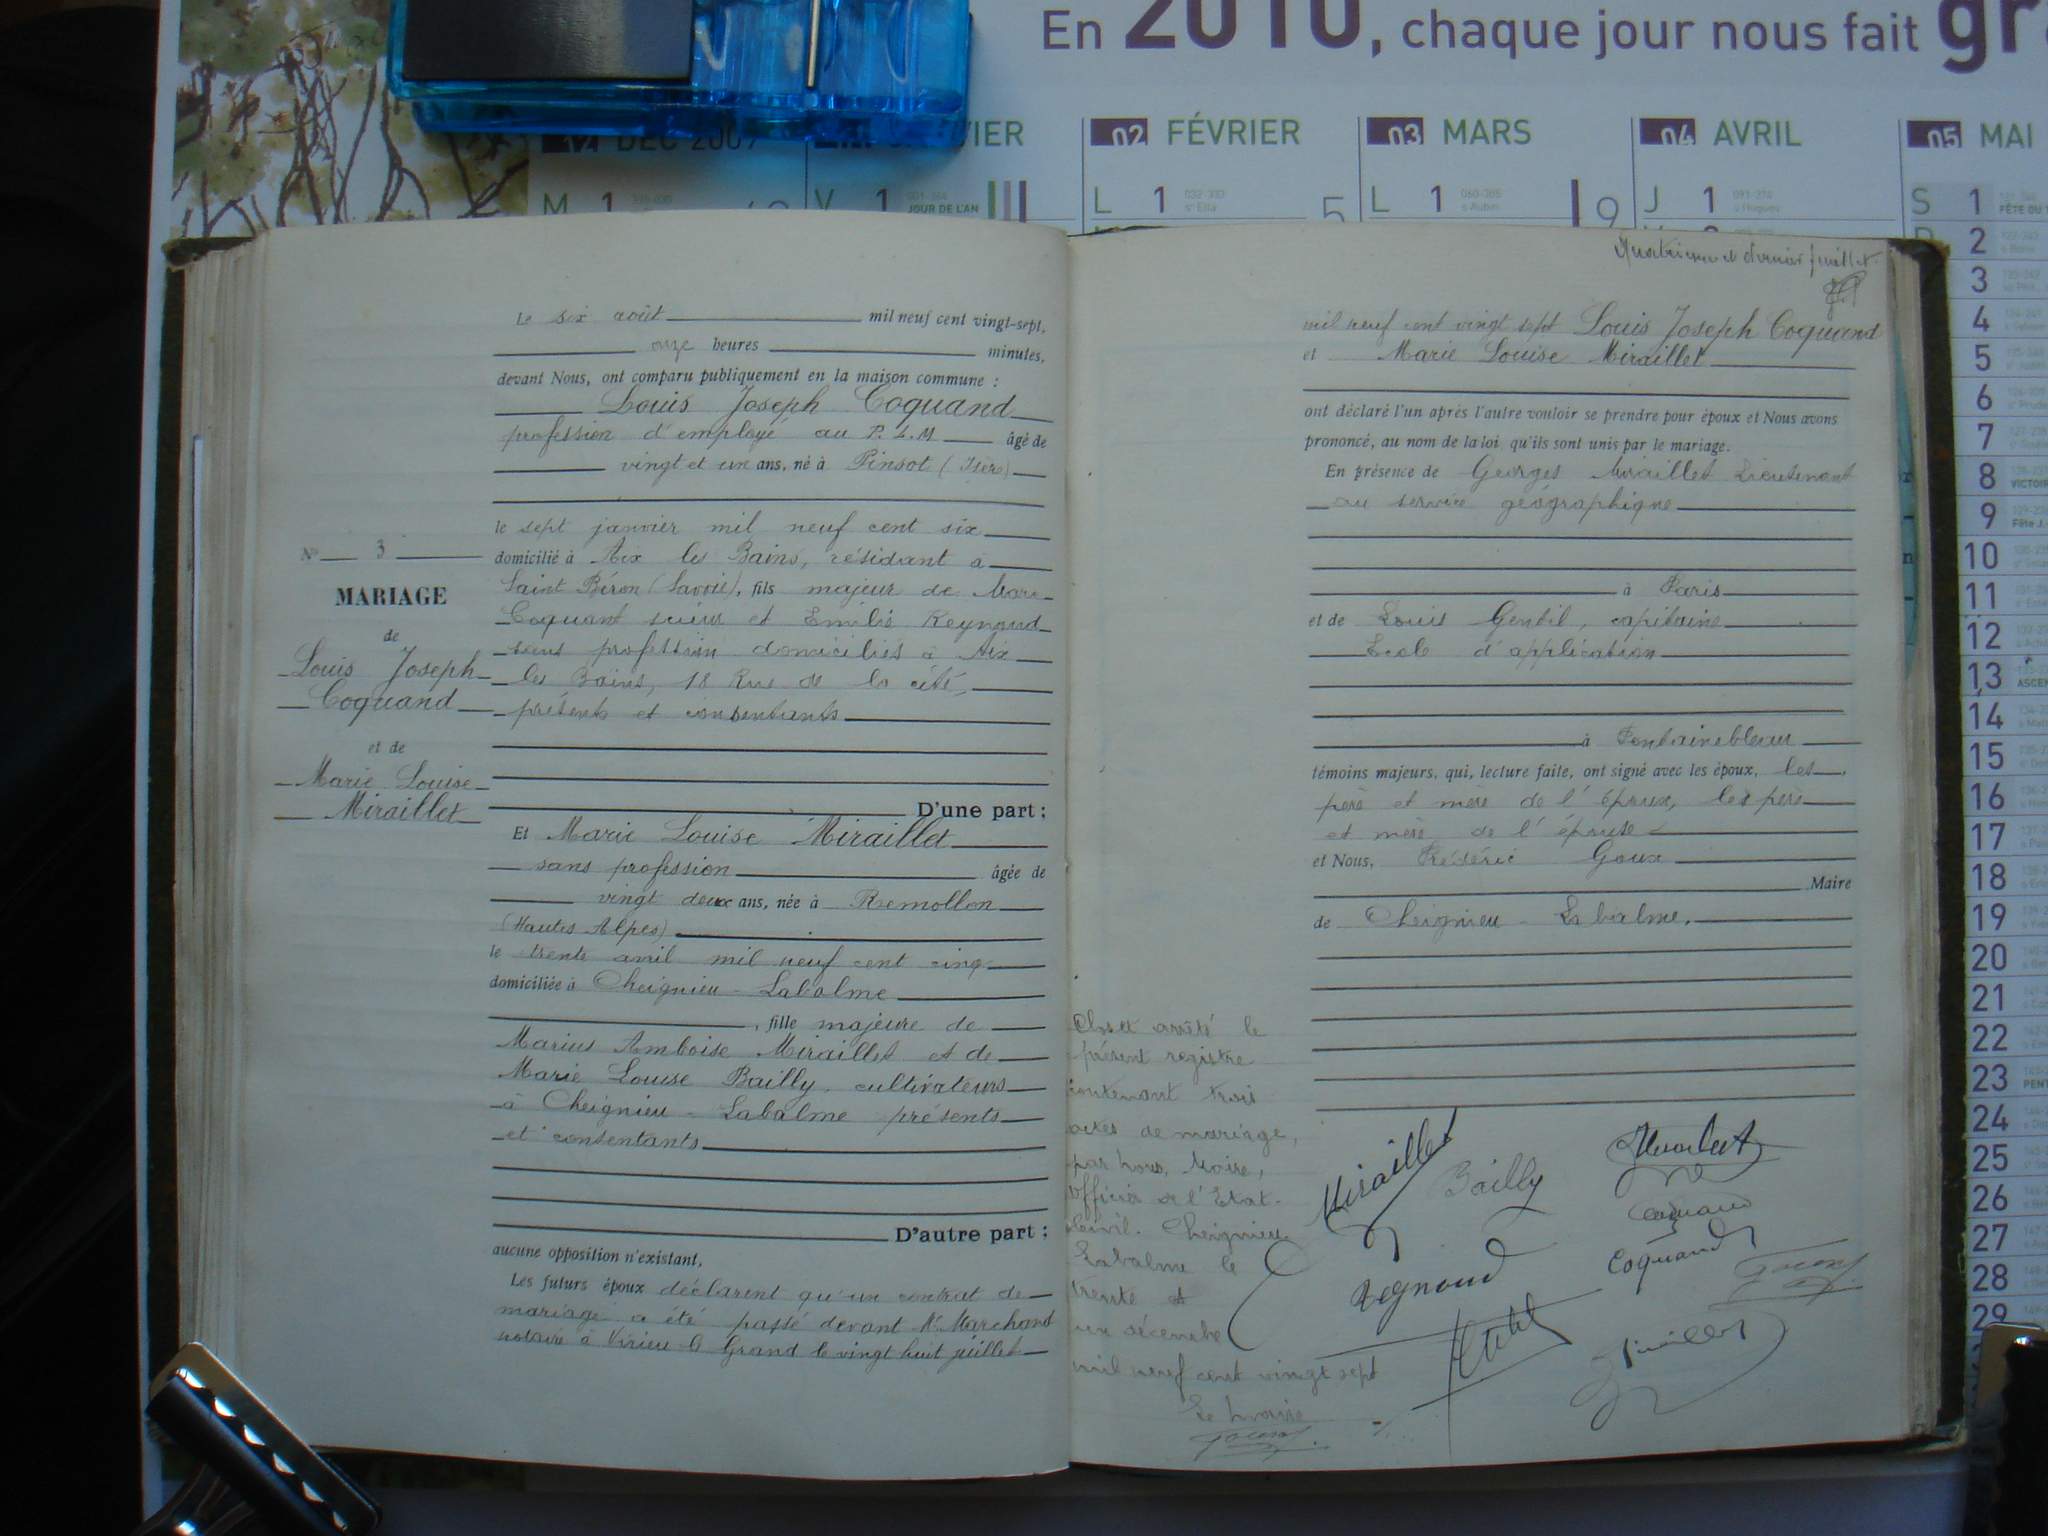 En 2010, chaque jour nous fait gra
DEC 2009
VIER
02 FÉVRIER
03 MARS
04 AVRIL
05 MAI
M 1
V 1 JOUR DE L'AN
L 1
L 1
J 1
S 1
2
3
4
5
6
7
8
9
10
11
12
13
14
15
16
17
18
19
20
21
22
23
24
25
26
27
28
29
N° 3
MARIAGE
de
Louis Joseph
Coquand
et de
Marie Louise
Miraillet
Le six août mil neuf cent vingt-sept,
onze heures minutes,
devant Nous, ont comparu publiquement en la maison commune :
Louis Joseph Coquand
profession d'employé au P.L.M âgé de
vingt et un ans, né à Pinsot (Isère)
le sept janvier mil neuf cent six
domicilié à Aix les Bains, résidant à
Saint Béron (Savoie), fils majeur de Marc
Coquant scieur et Emilie Reynaud
sans profession domiciliés à Aix
les Bains, 18 Rue de la cité,
présents et consentants
D'une part ;
Et Marie Louise Miraillet
sans profession âgée de
vingt deux ans, née à Remollon
(Hautes Alpes)
le trente avril mil neuf cent cinq
domiciliée à Cheignieu - Labalme
, fille majeure de
Marius Amboise Miraillet et de
Marie Louise Bailly, cultivateurs
à Cheignieu - Labalme présents
et consentants
D'autre part ;
aucune opposition n'existant,
Les futurs époux déclarent qu'un contrat de
mariage a été passé devant Me Marchand
notaire à Virieu le Grand le vingt huit juillet
Quatrième et dernier feuillet.
mil neuf cent vingt sept Louis Joseph Coquand
et Marie Louise Miraillet
ont déclaré l'un après l'autre vouloir se prendre pour époux et Nous avons
prononcé, au nom de la loi qu'ils sont unis par le mariage.
En présence de Georges Miraillet Lieutenant
au service géographique
à Paris
et de Louis Gentil, capitaine
Ecole d'application
à Fontainebleau
témoins majeurs, qui, lecture faite, ont signé avec les époux, les
père et mère de l'époux, les père
et mère de l'épouse
et Nous, Frédéric Goux
Maire
de Cheignieu - Labalme.
Clos et arrêté le
présent registre
contenant trois
actes de mariage,
par nous, Maire,
Officier de l'Etat-
Civil. Cheignieu
Labalme le
trente et
un décembre
mil neuf cent vingt sept
Le Maire
Miraillet
Bailly
Coquand
Coquand
Reynaud
Miraillet